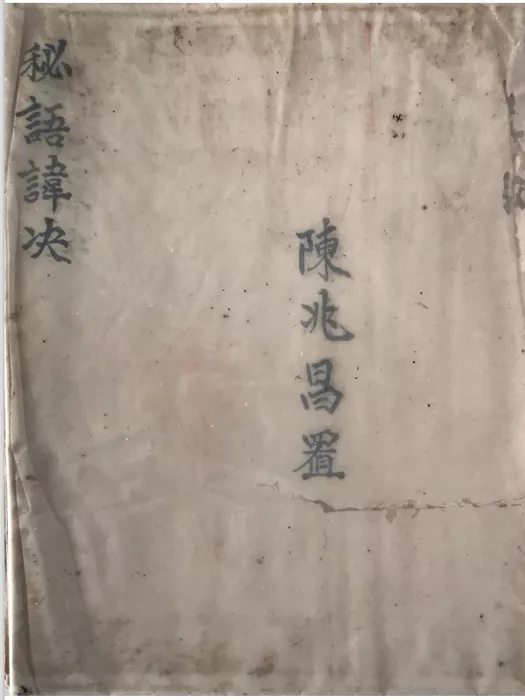 陳兆昌置
秘語諱决